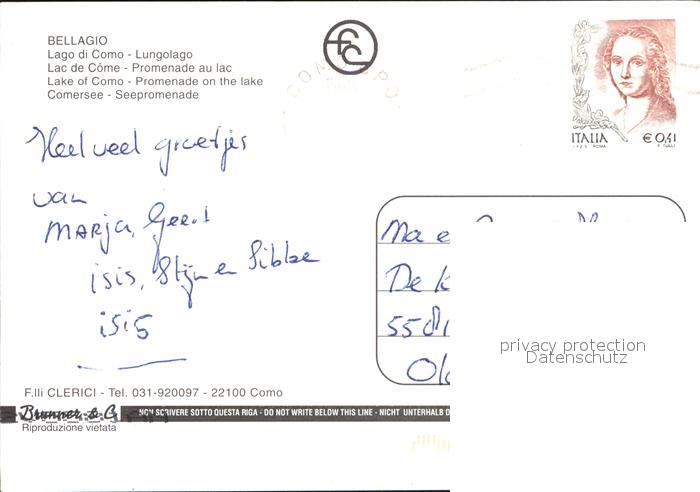 BELLAGIO
Lago di Como - Lungolago
Lac de Côme - Promenade au lac
Lake of Como - Promenade on the lake
Comersee - Seepromenade
fc
COMO
ITALIA
€ 0,41
I.P.Z.S. ROMA
Heel veel groetjes
van
Marja, Geert
isis, Stijn en Sibbe
isis
Ma e
De k
Ol
privacy protection
Datenschutz
F.lli CLERICI - Tel. 031-920097 - 22100 Como
Brunner & C.
NON SCRIVERE SOTTO QUESTA RIGA - DO NOT WRITE BELOW THIS LINE - NICHT UNTERHALB D
Riproduzione vietata